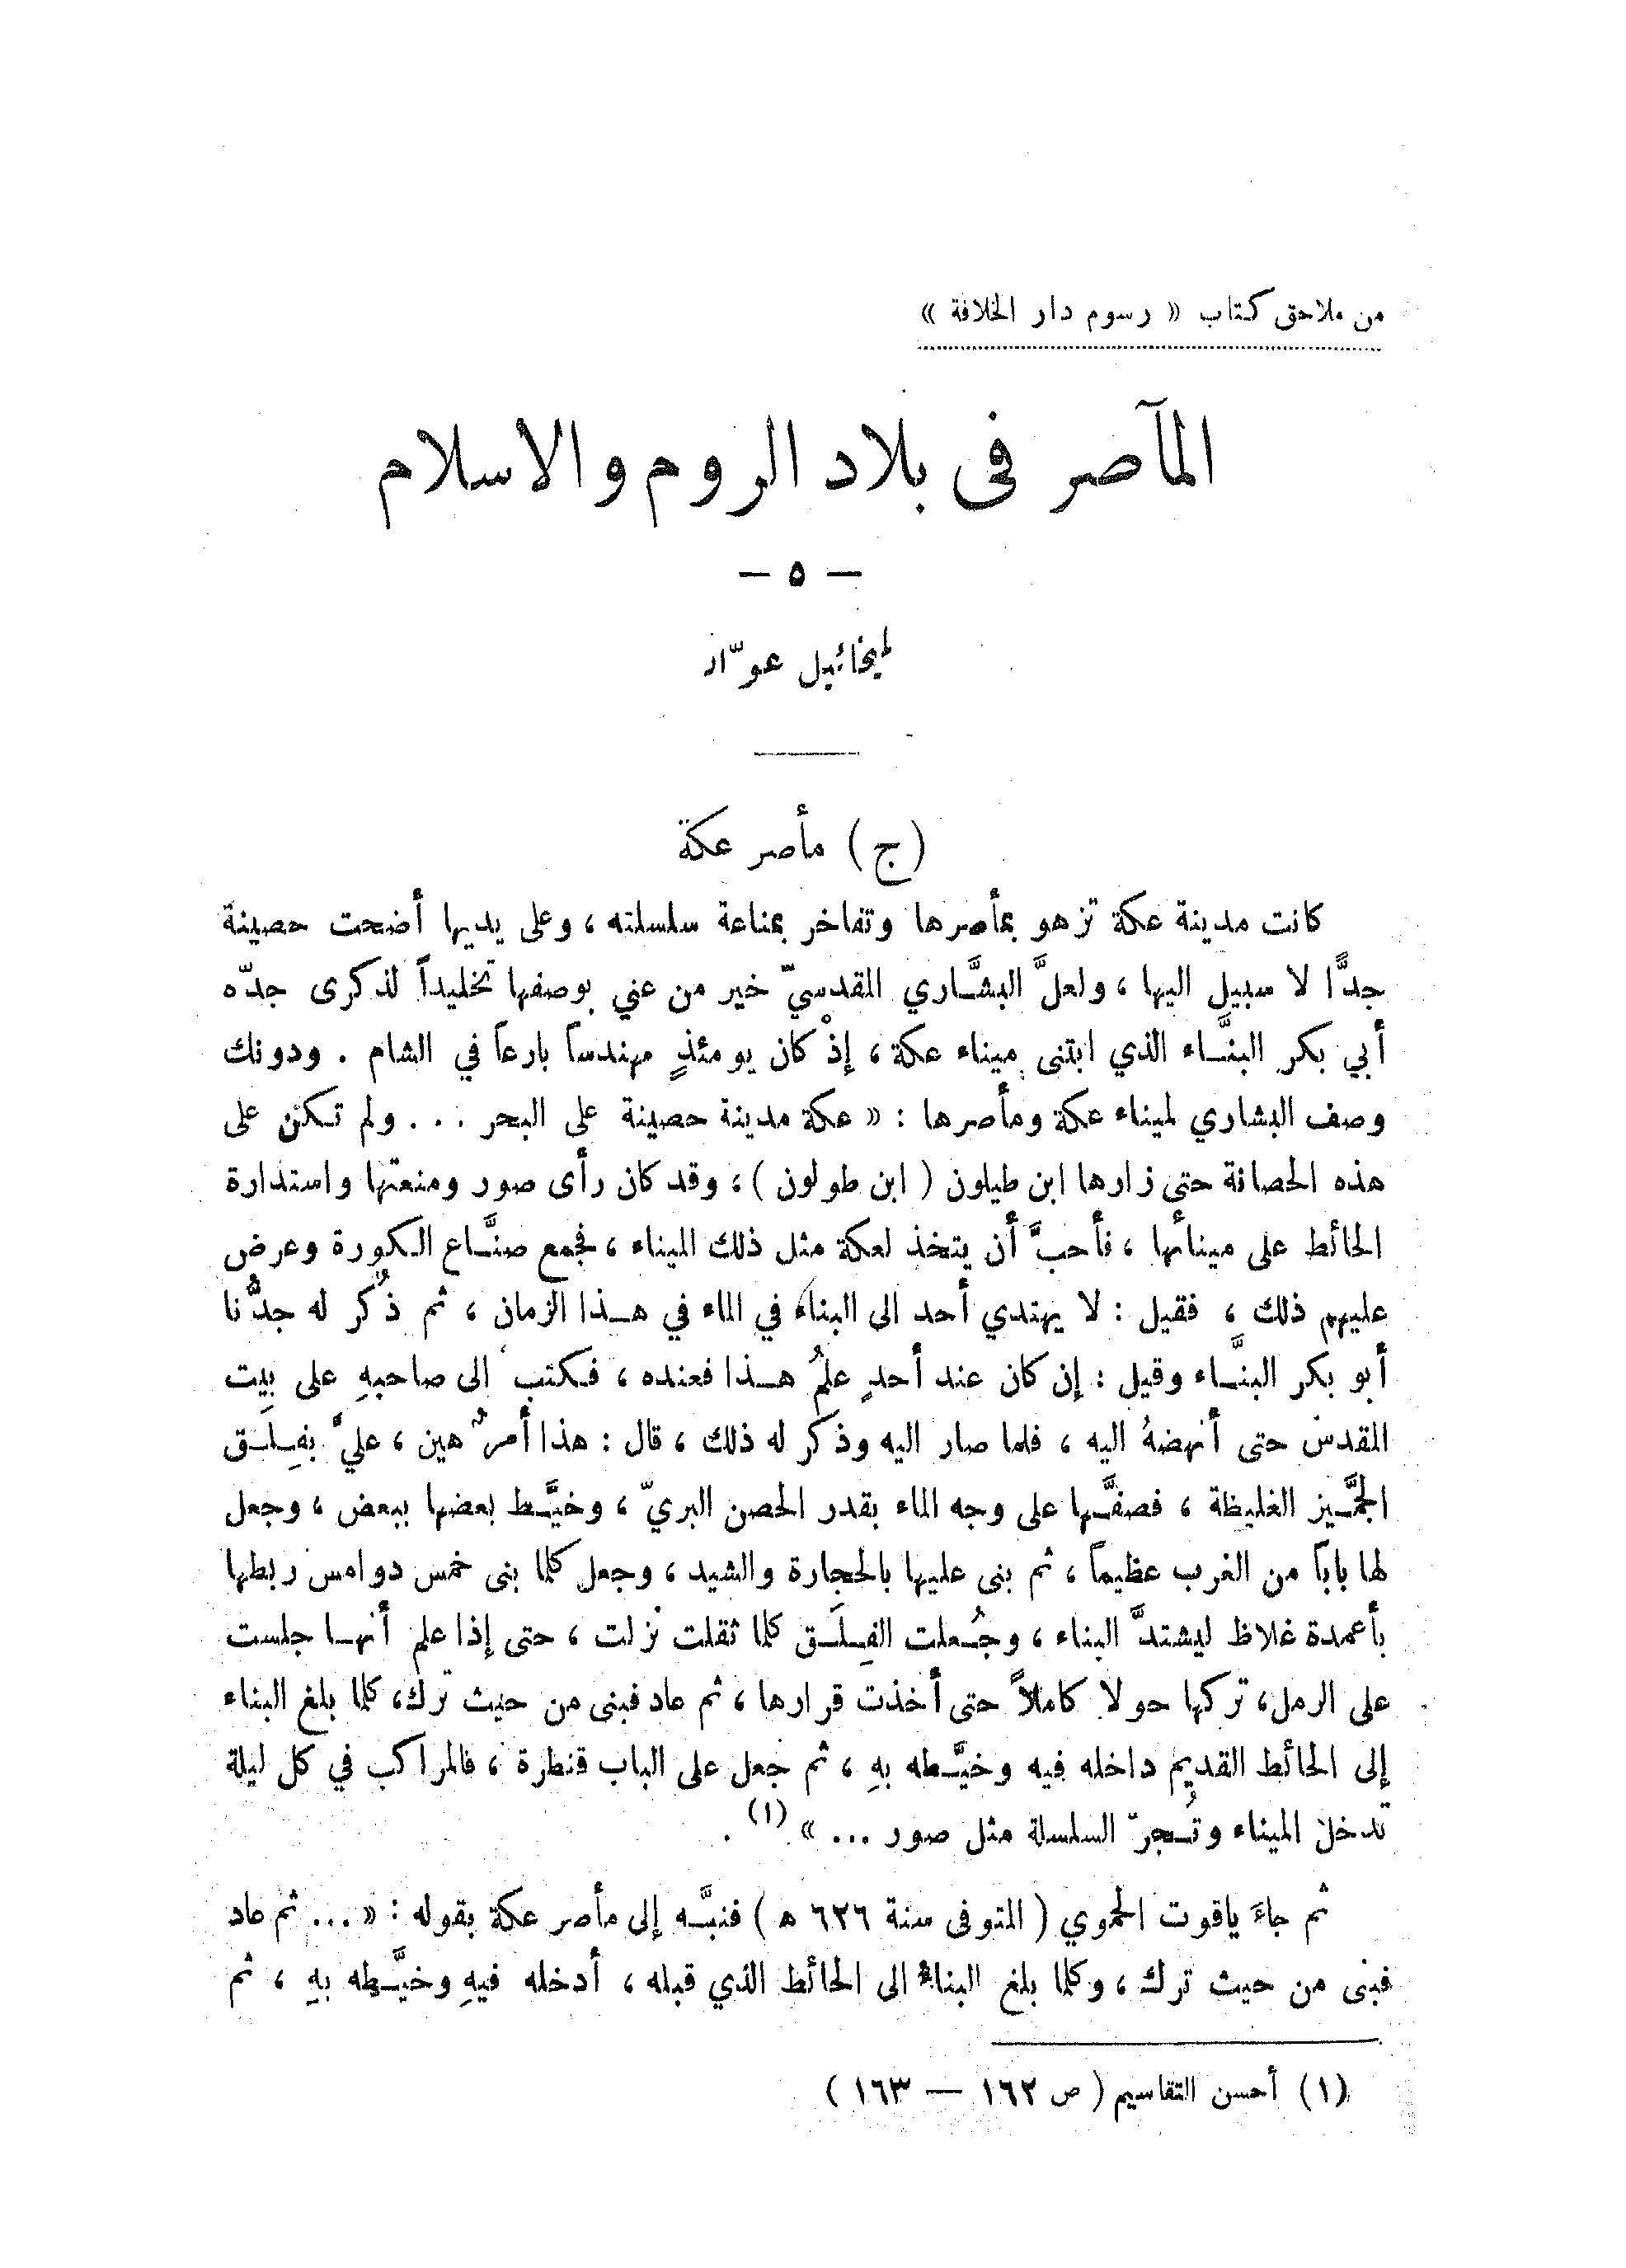 من ملاحق كتاب « رسوم دار الخلافة »
المآصر في بلاد الروم والاسلام
— ٥ —
لميخائيل عوّاد
(ج) مأصر عكة
كانت مدينة عكة تزهو بمأصرها وتفاخر بمناعة سلسلته ، وعلى يديها أضحت حصينة
جدًّا لا سبيل اليها ، ولعلَّ البشَّاري المقدسيّ خير من عني بوصفها تخليداً لذكرى جدّه
أبي بكر البنَّاء الذي ابتنى ميناء عكة ، إذْ كان يومئذٍ مهندساً بارعاً في الشام . ودونك
وصف البشاري لميناء عكة ومأصرها : « عكة مدينة حصينة على البحر ... ولم تكن على
هذه الحصانة حتى زارها ابن طيلون ( ابن طولون ) ، وقد كان رأى صور ومنعتها واستدارة
الحائط على مينائها ، فأحبَّ أن يتخذ لعكة مثل ذلك الميناء ، فجمع صنَّاع الكورة وعرض
عليهم ذلك ، فقيل : لا يهتدي أحد الى البناء في الماء في هذا الزمان ، ثم ذُكر له جدُّنا
أبو بكر البنَّاء وقيل : إن كان عند أحدٍ علمُ هذا فعنده ، فكتب الى صاحبهِ على بيت
المقدس حتى أنهضهُ اليه ، فلما صار اليه وذكر له ذلك ، قال : هذا أمرٌ هين ، عليَّ بفِلَق
الجمَّيز الغليظة ، فصفَّها على وجه الماء بقدر الحصن البريّ ، وخيَّط بعضها ببعض ، وجعل
لها باباً من الغرب عظيماً ، ثم بنى عليها بالحجارة والشيد ، وجعل كلما بنى خمس دوامس ربطها
بأعمدة غلاظ ليشتدَّ البناء ، وجُعلت الفِلَق كلما ثقلت نزلت ، حتى إذا علم أنها جلست
على الرمل، تركها حولا كاملاً حتى أخذت قرارها ، ثم عاد فبنى من حيث ترك، كلما بلغ البناء
إلى الحائط القديم داخله فيه وخيَّطه بهِ ، ثم جعل على الباب قنطرة ، فالمراكب في كل ليلة
تدخل الميناء وتُجرّ السلسلة مثل صور ... » (١) .
ثم جاءَ ياقوت الحموي ( المتوفى سنة ٦٢٦ ه ) فنبَّه إلى مأصر عكة بقوله : « ... ثم عاد
فبنى من حيث ترك ، وكلما بلغ البناءُ الى الحائط الذي قبله ، أدخله فيهِ وخيَّطه بهِ ، ثم
(١) أحسن التقاسيم ( ص ١٦٢ — ١٦٣ )